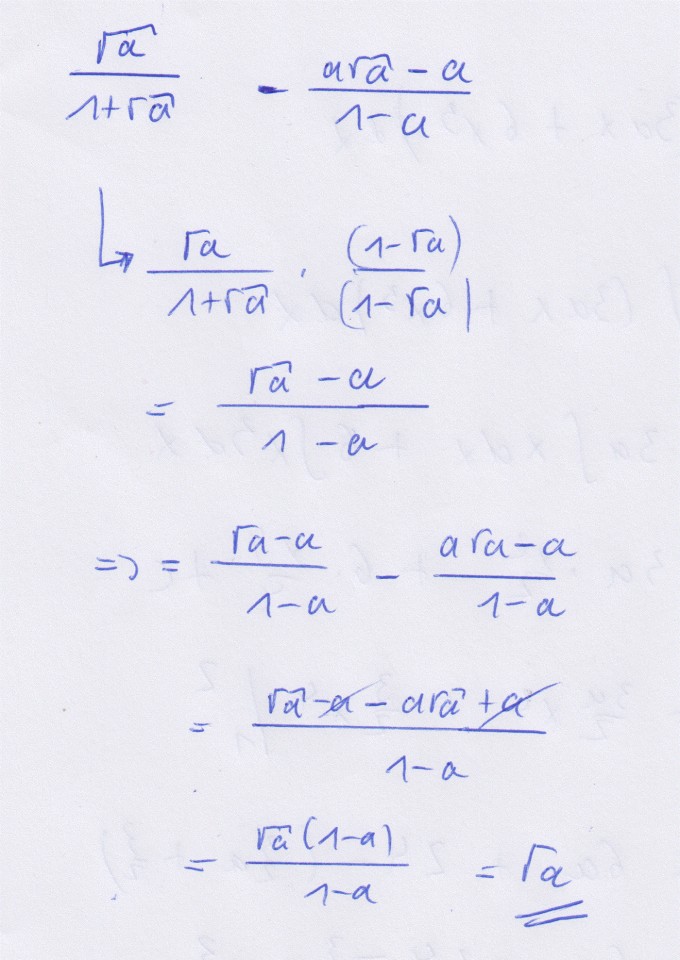 √a / (1+√a) - (a√a - a) / (1-a)
↳ √a / (1+√a) · (1-√a) / (1-√a)
= (√a - a) / (1 - a)
=> = (√a - a) / (1-a) - (a√a - a) / (1-a)
= (√a - a - a√a + a) / (1-a)
= √a (1-a) / (1-a) = √a